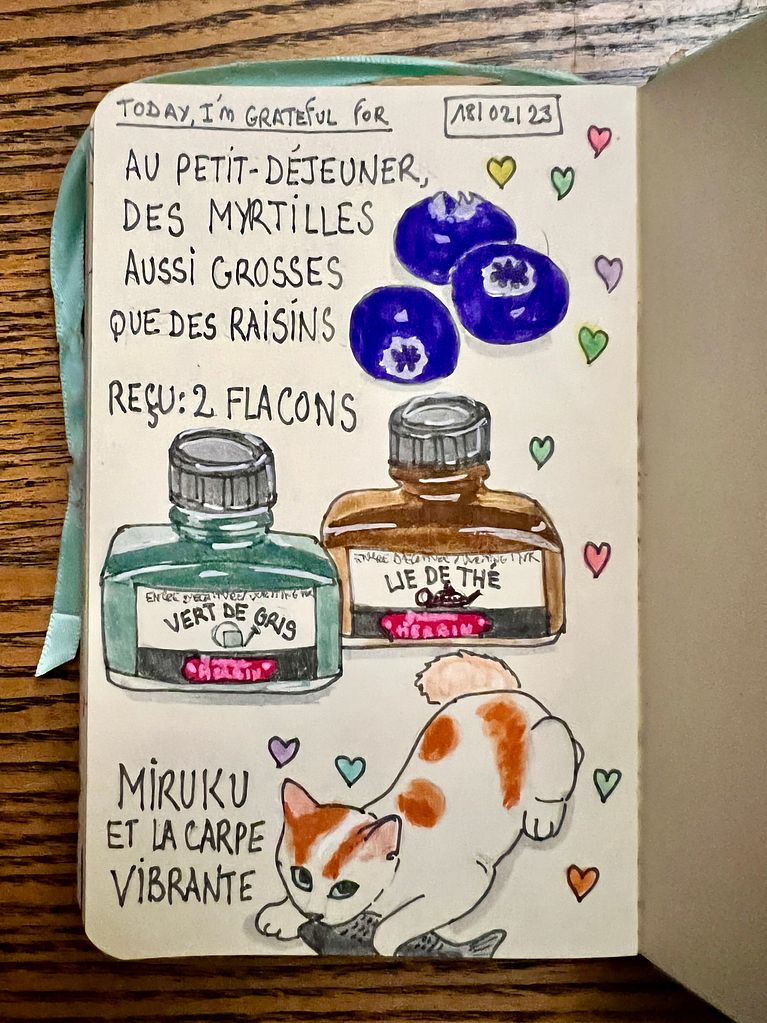 TODAY, I'M GRATEFUL FOR
18/02/23
AU PETIT-DÉJEUNER,
DES MYRTILLES
AUSSI GROSSES
QUE DES RAISINS
REÇU: 2 FLACONS
LIE DE THÉ
HERBIN
VERT DE GRIS
HERBIN
MIRUKU
ET LA CARPE
VIBRANTE